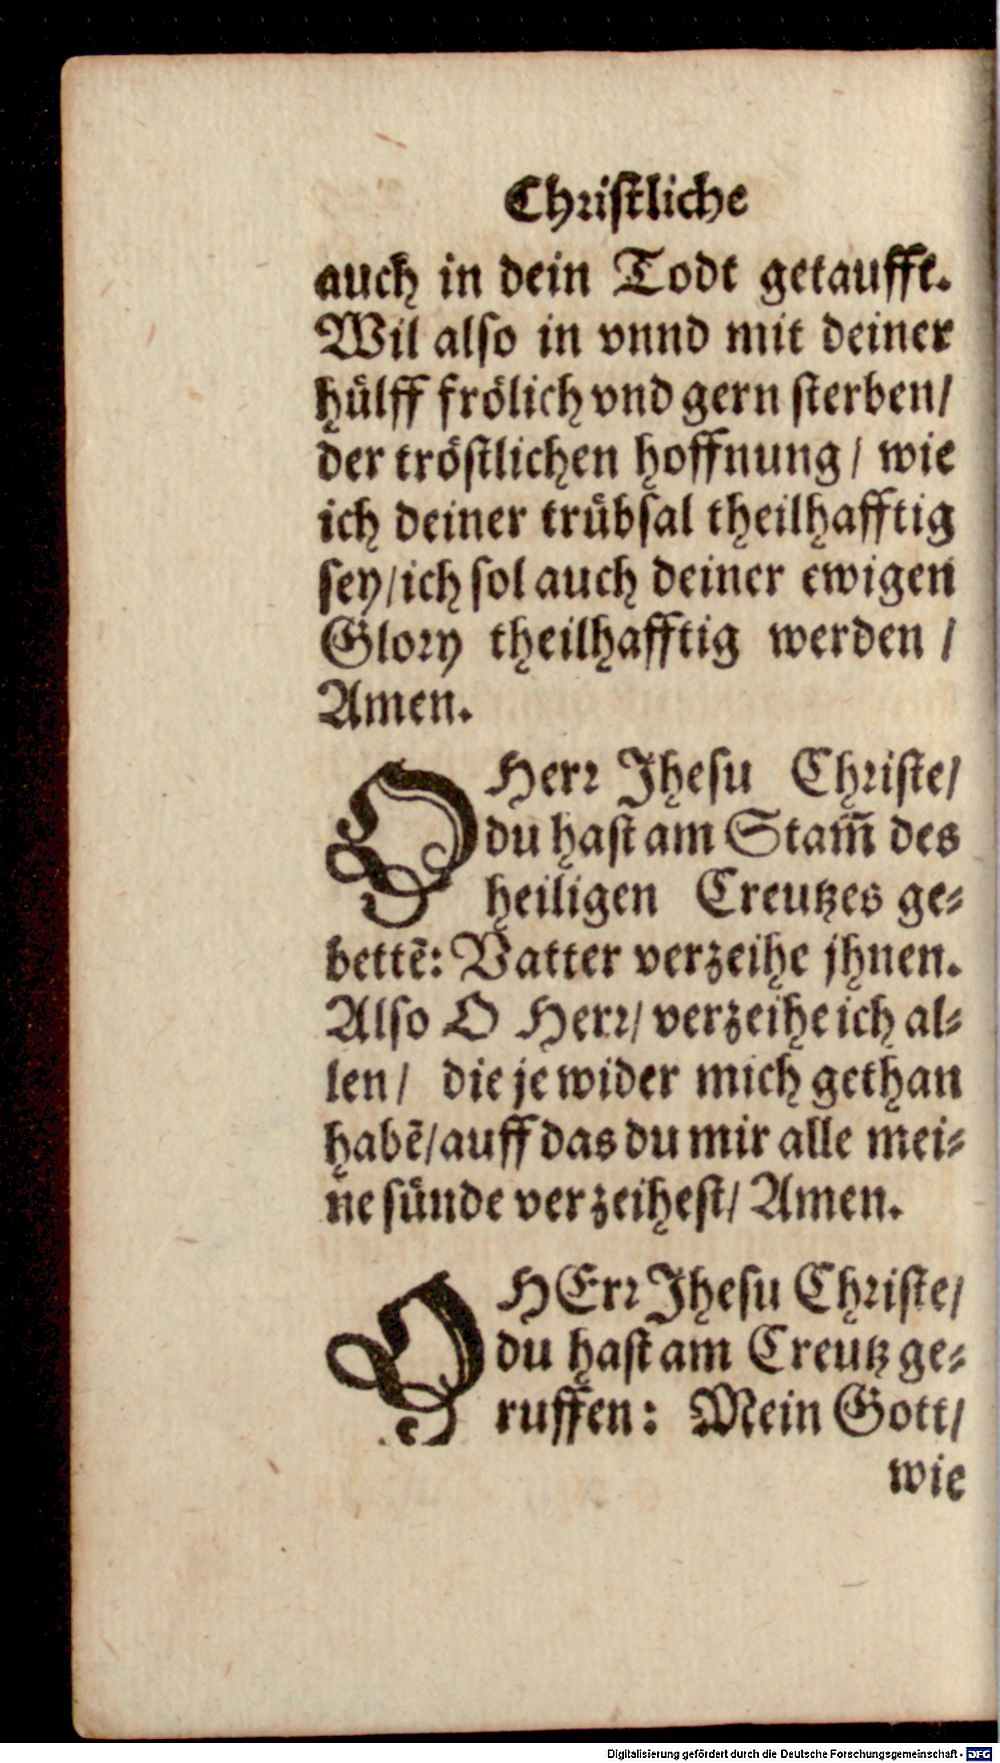 Christliche
auch in dein Todt getaufft.
Wil also in vnnd mit deiner
huͤlff froͤlich vnd gern sterben/
der troͤstlichen hoffnung/ wie
ich deiner truͤbsal theilhafftig
sey/ich sol auch deiner ewigen
Glory theilhafftig werden /
Amen.
O Herr Jhesu Christe/
du hast am Stam̃ des
heiligen Creutzes ge-
bettẽ: Vatter verzeihe jhnen.
Also O Herr/ verzeihe ich al-
len/ die je wider mich gethan
habẽ/auff das du mir alle mei-
ne suͤnde verzeihest/ Amen.
O HErr Jhesu Christe/
du hast am Creutz ge-
ruffen: Mein Gott/
wie
Digitalisierung gefördert durch die Deutsche Forschungsgemeinschaft - DFG